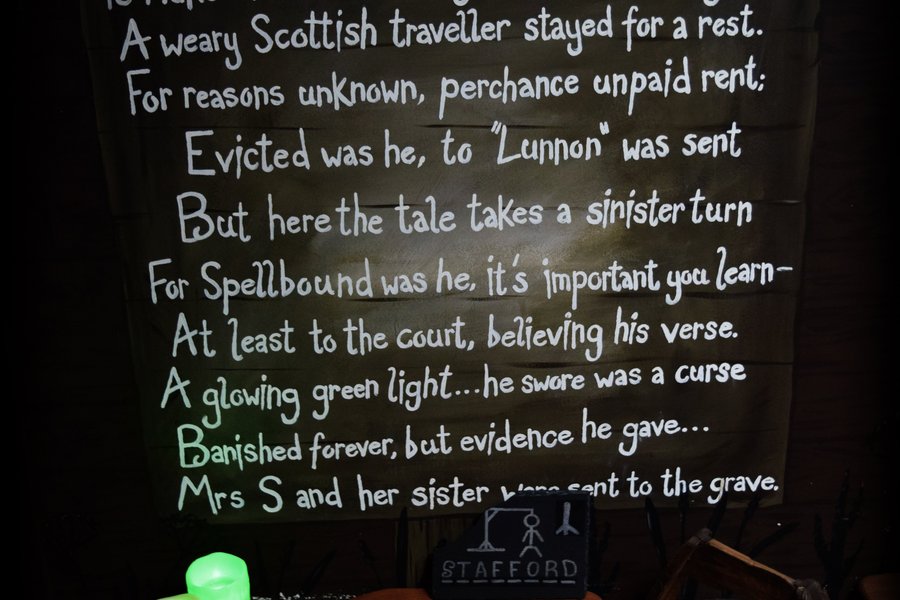 A weary Scottish traveller stayed for a rest.
For reasons unknown, perchance unpaid rent;
Evicted was he, to "Lunnon" was sent
But here the tale takes a sinister turn
For Spellbound was he, it's important you learn-
At least to the court, believing his verse.
A glowing green light...he swore was a curse
Banished forever, but evidence he gave...
Mrs S and her sister were sent to the grave.
STAFFORD